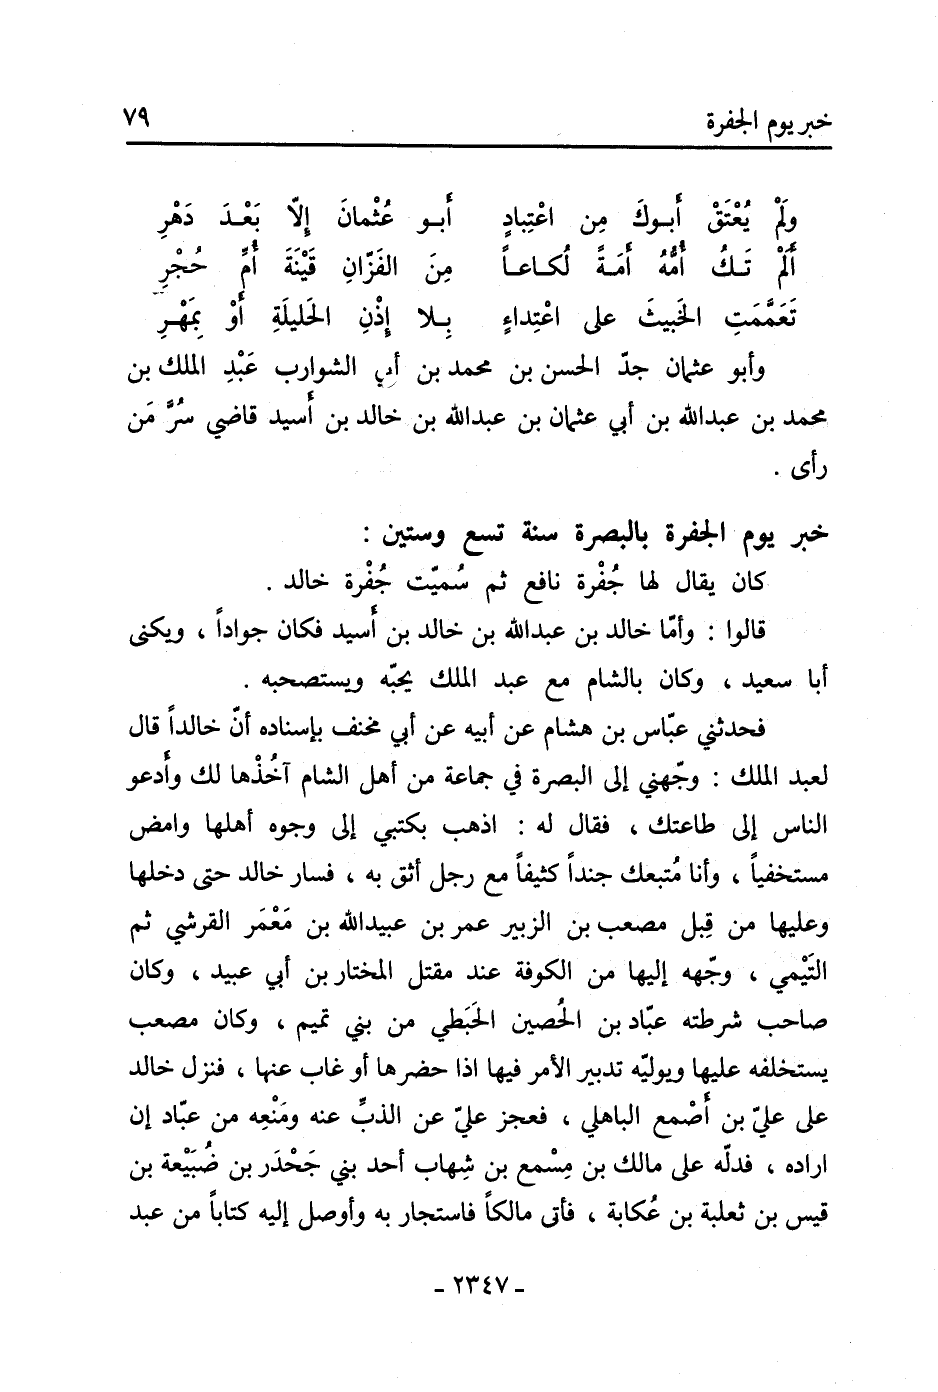 خبر يوم الجفرة ٧٩
ولَمْ يُعْتَقْ أَبـوكَ مِن اعْتِبادٍ أَبـو عُثْمانَ إلّا بَعْـدَ دَهْرِ
أَلَمْ تَـكُ أُمُّهُ أَمَـةً لُكـاعـاً مِنَ الفَزّانِ قَيْنَةَ أُمَّ حُجْرِ
تَعَمَّمَتِ الخَبيثَ على اعْتِداءٍ بِـلا إِذْنِ الخَليلَةِ أَوْ بِمَهْـرِ
وأبو عثمان جدّ الحسن بن محمد بن أبي الشوارب عَبْدِ الملك بن
محمد بن عبدالله بن أبي عثمان بن عبدالله بن خالد بن أَسيد قاضي سُرَّ مَن
رأى .
خبر يوم الجفرة بالبصرة سنة تسع وستين :
كان يقال لها جُفْرة نافع ثم سُميّت جُفْرة خالد .
قالوا : وأمّا خالد بن عبدالله بن خالد بن أَسيد فكان جواداً ، ويكنى
أبا سعيد ، وكان بالشام مع عبد الملك يحبّه ويستصحبه .
فحدثني عبّاس بن هشام عن أبيه عن أبي مخنف بإسناده أنّ خالداً قال
لعبد الملك : وجّهني إلى البصرة في جماعة من أهل الشام آخُذْها لك وأدعو
الناس إلى طاعتك ، فقال له : اذهب بكتبي إلى وجوه أهلها وامض
مستخفياً ، وأنا مُتبعك جنداً كثيفاً مع رجل أثق به ، فسار خالد حتى دخلها
وعليها من قِبل مصعب بن الزبير عمر بن عبيدالله بن مَعْمَر القرشي ثم
التَيْمي ، وجّهه إليها من الكوفة عند مقتل المختار بن أبي عبيد ، وكان
صاحب شرطته عبّاد بن الحُصين الحَبَطي من بني تميم ، وكان مصعب
يستخلفه عليها ويوليّه تدبير الأمر فيها اذا حضرها أو غاب عنها ، فنزل خالد
على عليّ بن أَصْمع الباهلي ، فعجز عليّ عن الذبّ عنه ومَنْعِه من عبّاد إن
اراده ، فدلّه على مالك بن مِسْمع بن شِهاب أحد بني جَحْدَر بن ضُبَيْعة بن
قيس بن ثعلبة بن عُكابة ، فأتى مالكاً فاستجار به وأوصل إليه كتاباً من عبد
ـ ٢٣٤٧ ـ